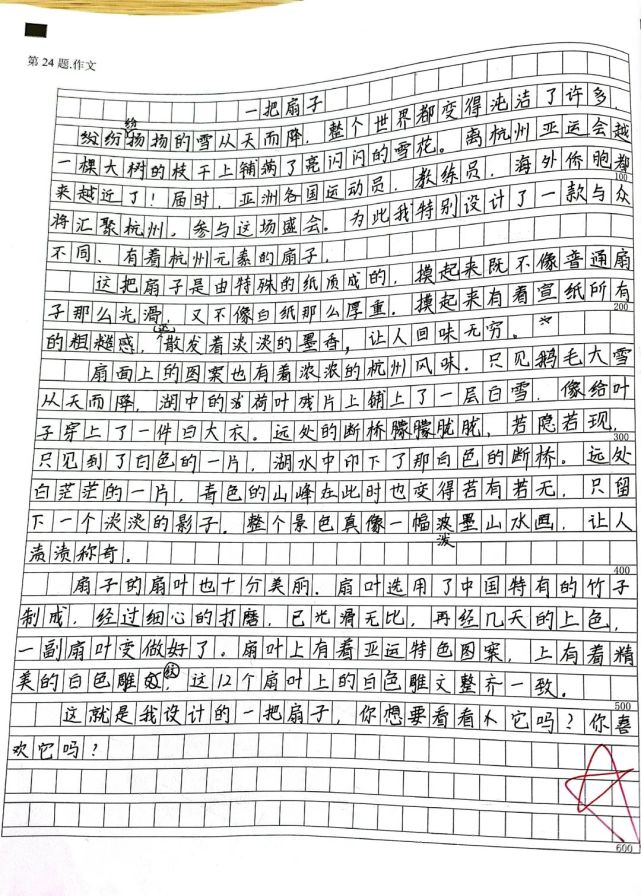 第 24 题.作文
一把扇子
纷纷扬扬的雪从天而降，整个世界都变得纯洁了许多，
一棵大树的枝干上铺满了亮闪闪的雪花。离杭州亚运会越
来越近了！届时，亚洲各国运动员，教练员，海外侨胞都
100
将汇聚杭州，参与这场盛会。为此我特别设计了一款与众
不同、有着杭州元素的扇子，
这把扇子是由特殊的纸质成的，摸起来既不像普通扇
子那么光滑，又不像白纸那么厚重，摸起来有着宣纸所有
200
的粗糙感，散发着淡淡的墨香，让人回味无穷。
扇面上的图案也有着浓浓的杭州风味，只见鹅毛大雪
从天而降，湖中的荷叶残片上铺上了一层白雪，像给叶
子穿上了一件白大衣。远处的断桥朦朦胧胧，若隐若现，
300
只见到了白色的一片，湖水中印下了那白色的断桥。远处
白茫茫的一片，青色的山峰在此时也变得若有若无，只留
下一个淡淡的影子，整个景色真像一幅泼墨山水画，让人
渍渍称奇。
400
扇子的扇叶也十分美丽，扇叶选用了中国特有的竹子
制成，经过细心的打磨，已光滑无比，再经几天的上色，
一副扇叶变做好了。扇叶上有着亚运特色图案，上有着精
美的白色雕纹，这12个扇叶上的白色雕文整齐一致。
500
这就是我设计的一把扇子，你想要看看它吗？你喜
欢它吗？
600